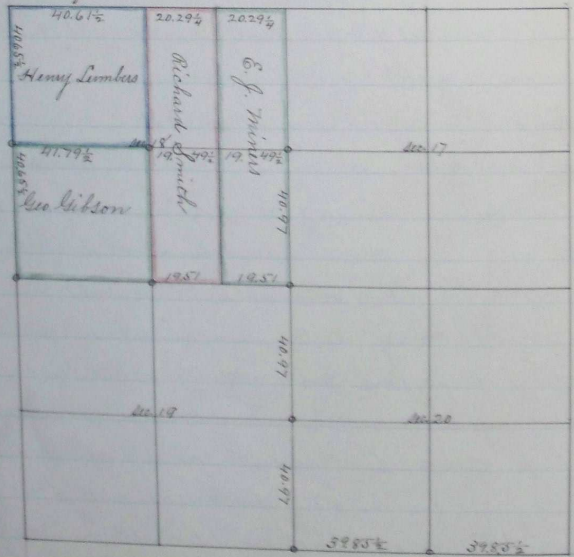 40.61½ 20.29¼ 20.29¼
40.65½
Henry Lumbers
Richard Smith
E. J. Minus
sec. 18
sec. 17
41.79½ 19. 49½ 19. 49½
40.65½
Geo. Gibson
40.97
19.51 19.51
40.97
sec. 19
sec. 20
40.97
39.85½ 39.85½